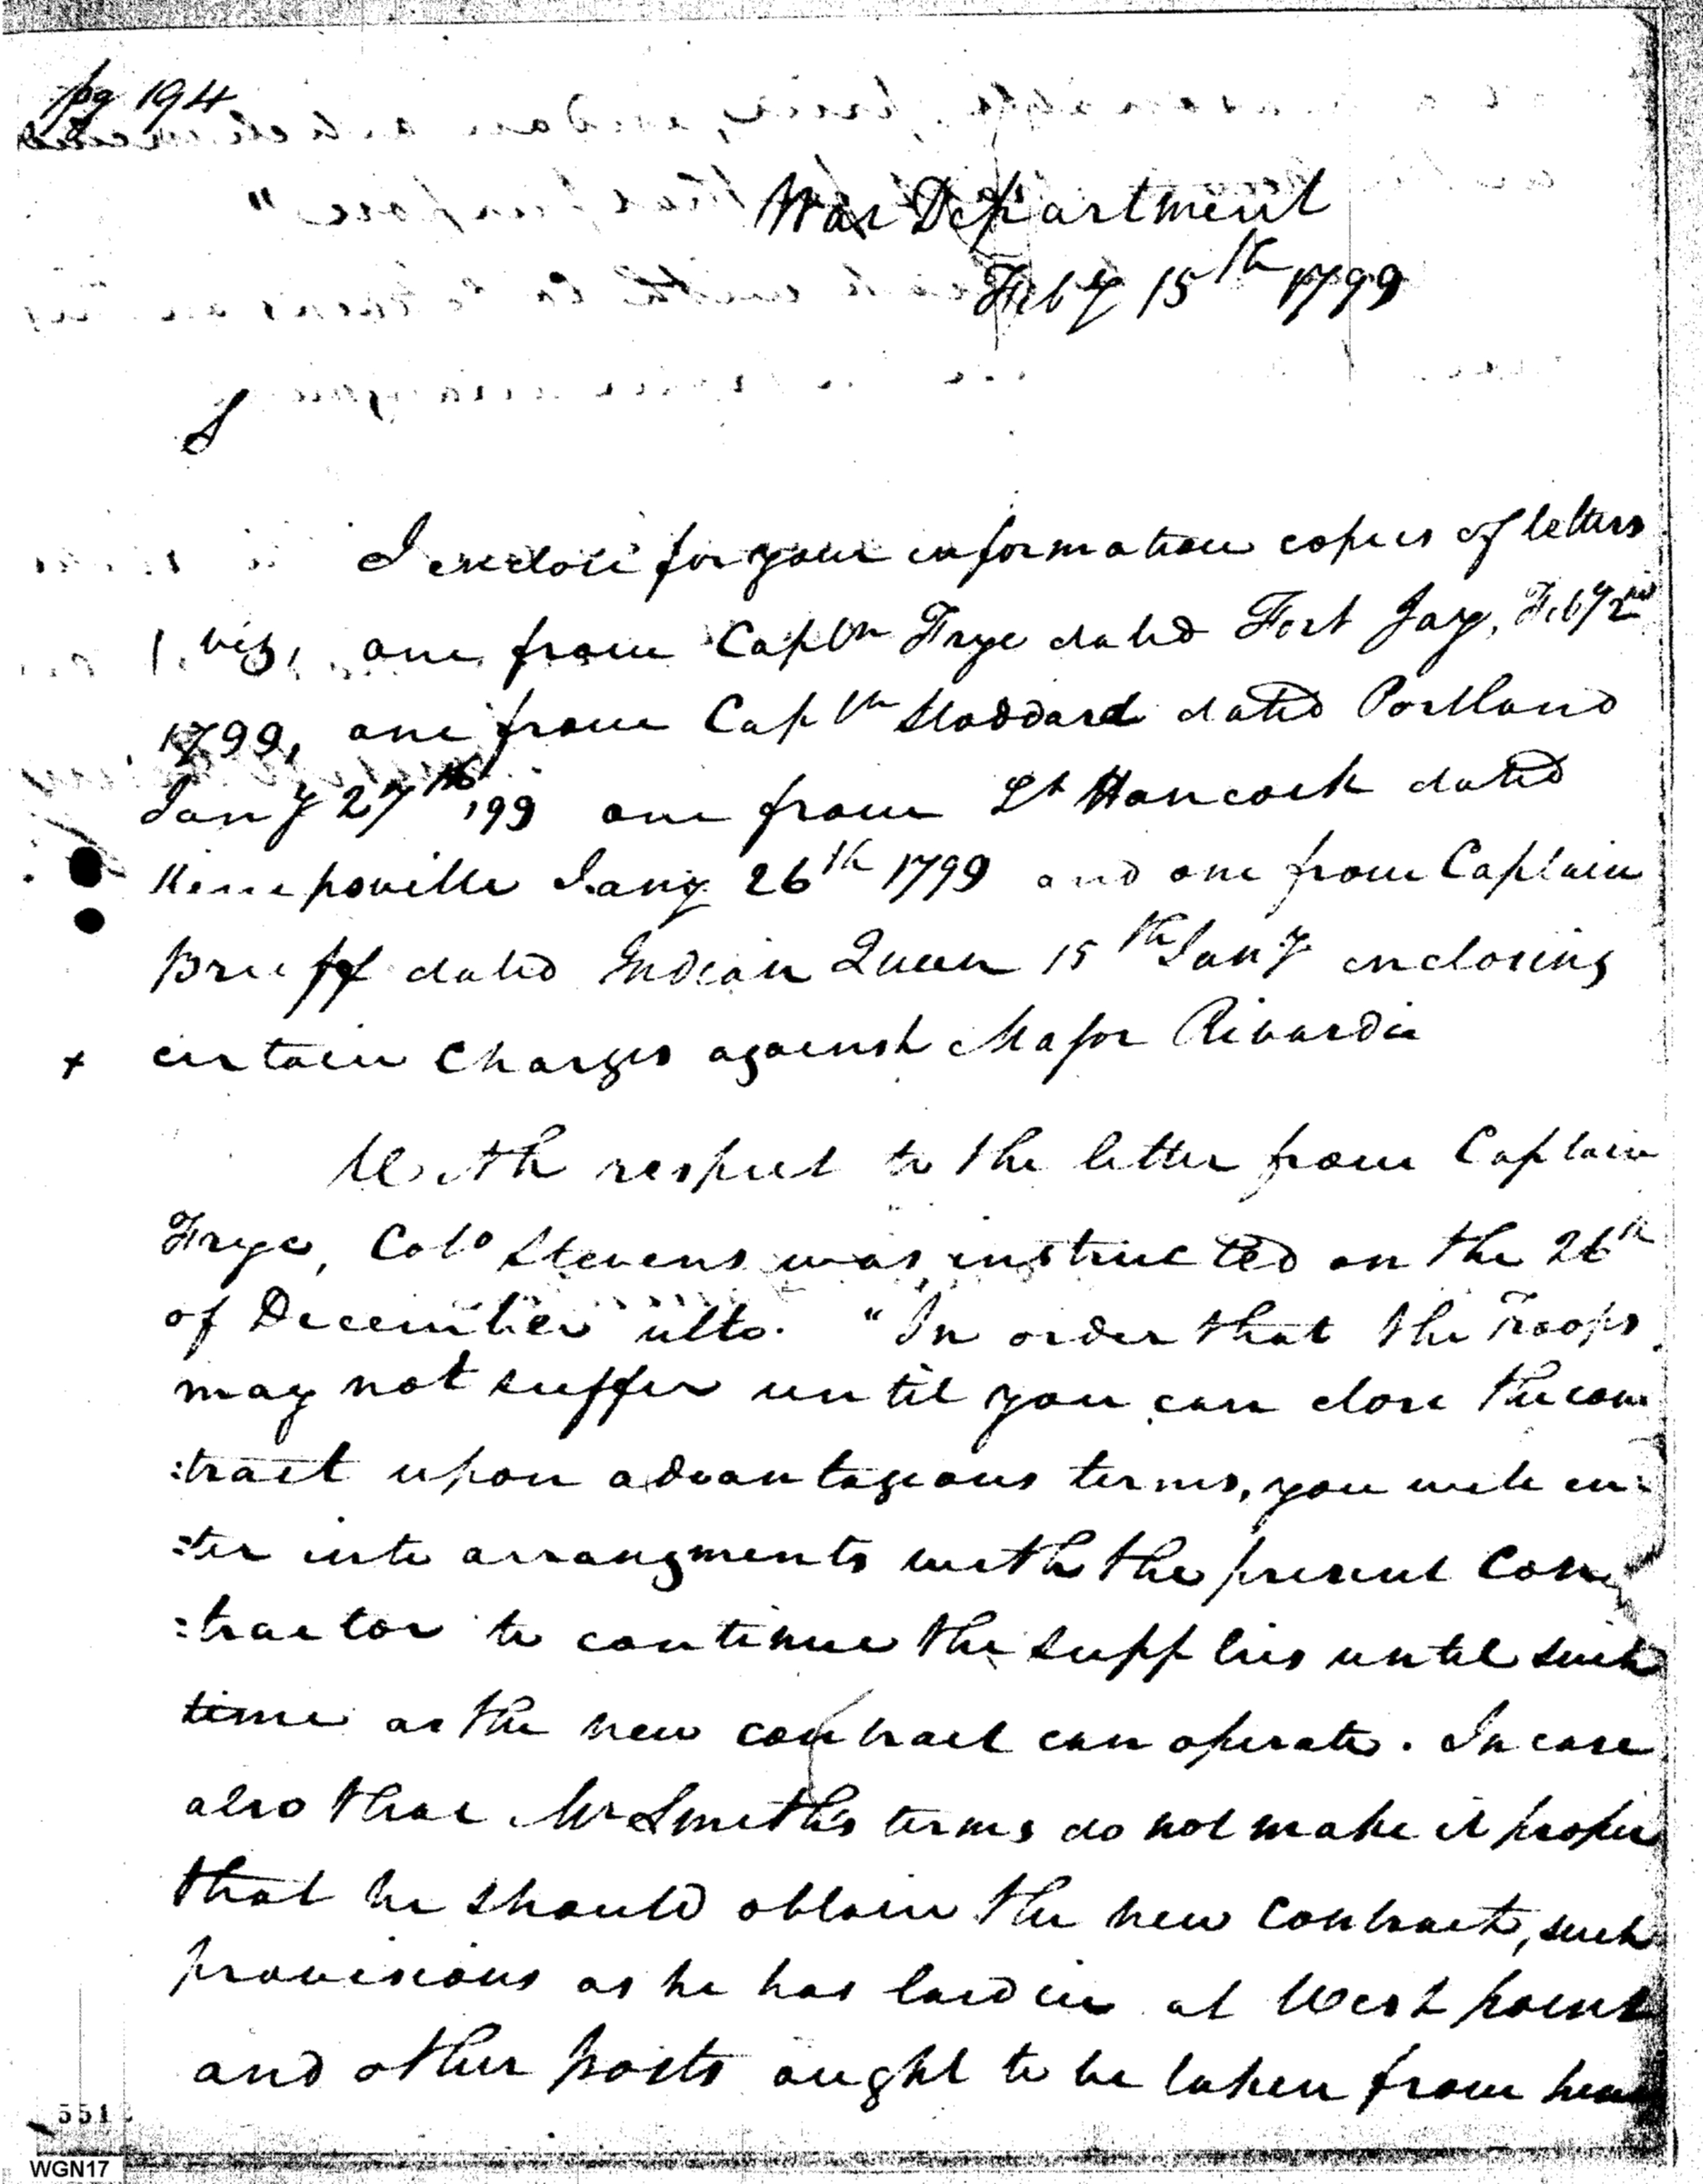 pg 194
War Department
Feby 15th 1799
S
I enclose for your information copies of letters
viz, one from Captn Frye dated Fort Jay, Feby 2nd
1799, one from Captn Stoddard dated Portland
Jany 27th, 99 one from Lt Hancock dated
Kempsville Jany 26th 1799 and one from Captain
Bruff dated Indian Queen 15th Jany enclosing
x certain Charges against Major Rivardi
With respect to the letter from Captain
Frye, Colo Stevens was instructed on the 26th
of December ulto. "In order that the Troops
may not suffer until you can close the con
:tract upon advantageous terms, you will en:
:ter into arrangments with the present Con
:tractor to continue the supplies until such
time as the new contract can operate. In case
also that Mr Smith's terms do not make it proper
that he should obtain the new Contract, such
provisions as he has laid in at West point
and other posts ought to be taken from him
551
WGN17